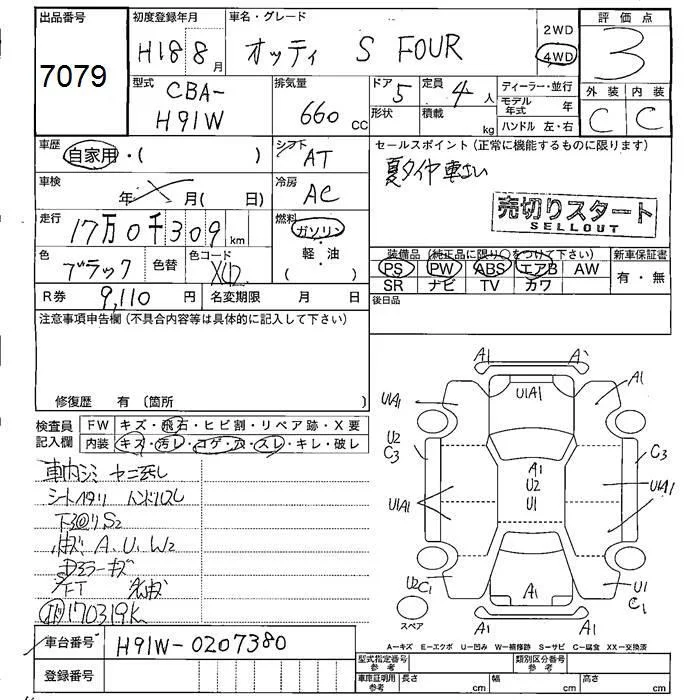 出品番号
7079
初度登録年月
H18 8 月
車名・グレード
オッティ S FOUR
2WD
4WD
評価点
3
型式
CBA-
H91W
排気量
660 CC
ドア 5
形状
定員 4 人
積載 kg
ディーラー・並行
モデル年式 年
ハンドル 左・右
外装 内装
C C
車歴
自家用・( )
シフト
AT
セールスポイント(正常に機能するものに限ります)
夏タイヤ
売切りスタート
SELLOUT
車検
年 月( 日)
冷房
AC
走行
17万0千309 km
燃料
ガソリン
軽・油
( )
色
ブラック
色替
色コード
装備品(純正品に限り○をつけて下さい)
新車保証書
PS PW ABS エアB AW
SR ナビ TV カワ
有・無
R券 9,110 円
名変期限 月 日
後日品
注意事項申告欄(不具合内容等は具体的に記入して下さい)
修復歴 有(箇所 )
検査員
記入欄
FW キズ・飛石・ヒビ割・リペア跡・X要
内装 キズ・汚レ・コゲ・穴・スレ・キレ・破レ
A1 A1
U1A1 U1A1 A1
U2
C3
C3
A1
U2
U1
U1A1 U1A1
U2C1
A1
U1
C1
A1 A1
スペア
A.U.W2
170319K
車台番号 H91W-0207380
登録番号
A=キズ E=エクボ U=凹み W=補修跡 S=サビ C=腐食 XX=交換済
型式指定番号
参考
類別区分番号
参考
車庫証明用
参考
長さ cm 幅 cm 高さ cm